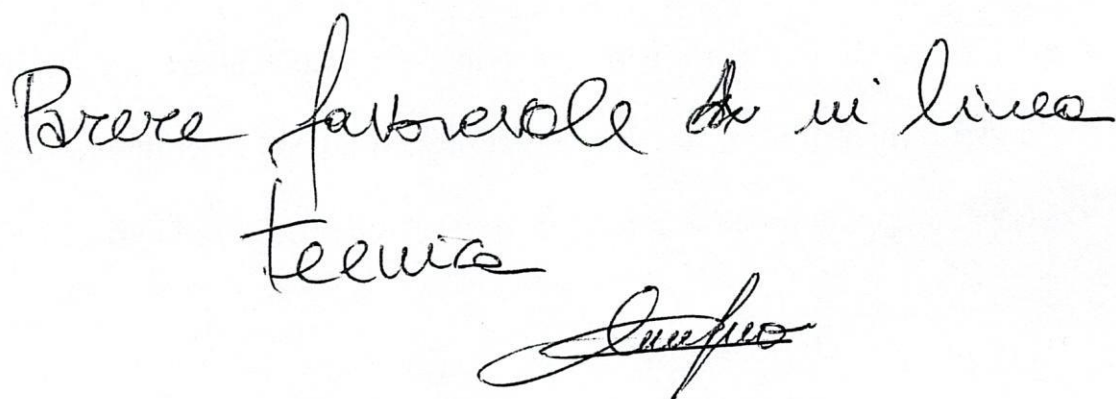 Parere favorevole in linea
tecnica